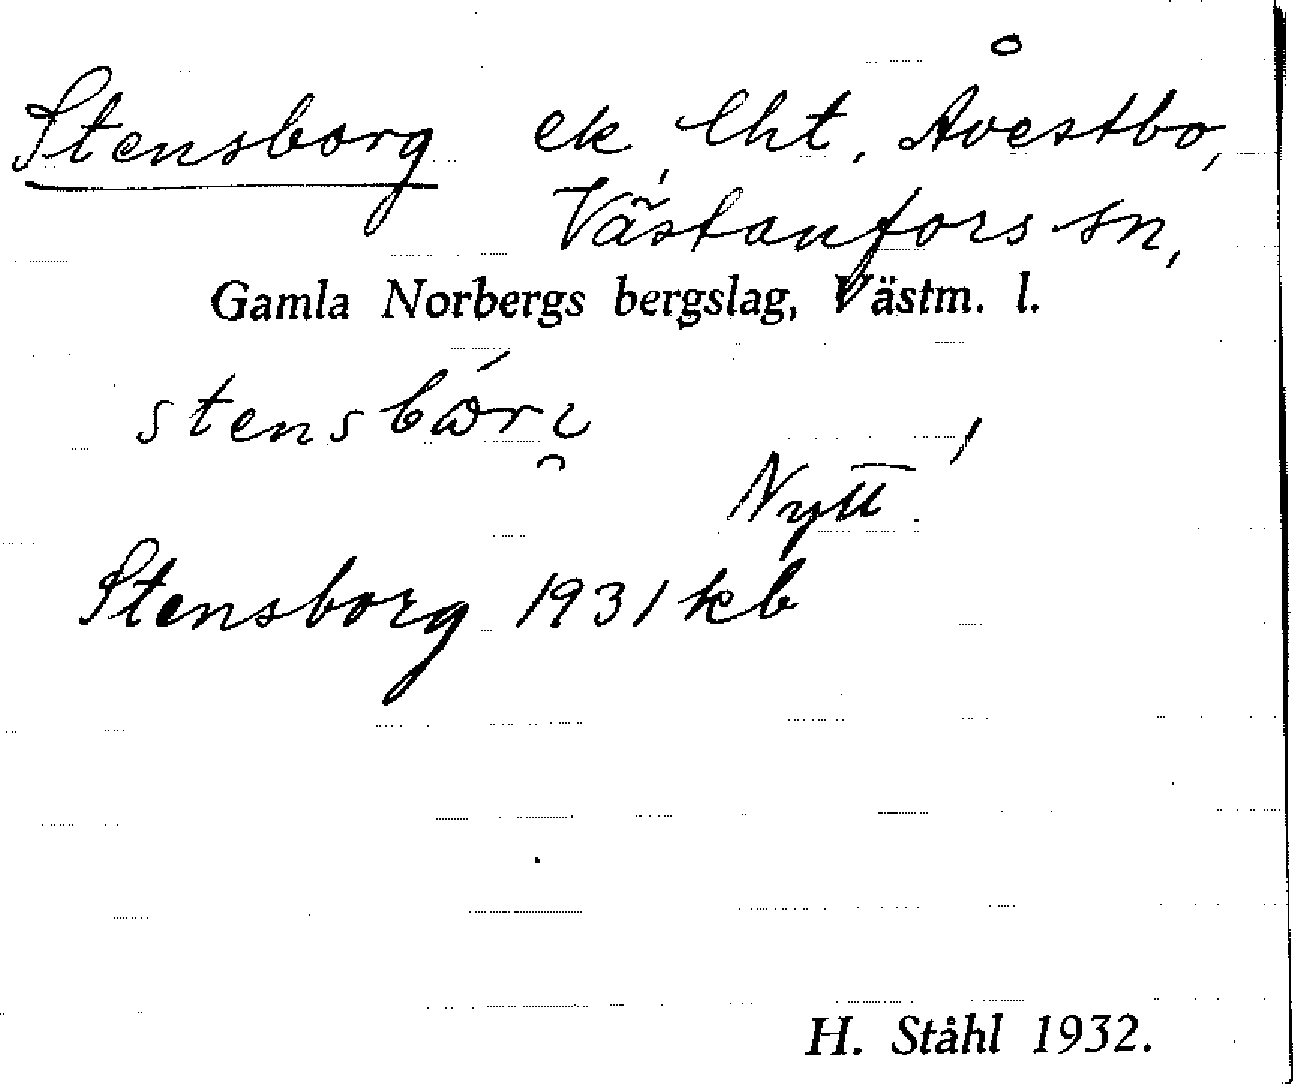 Stensborg ek, lht. Åvestbo,
Västanfors sn,
Gamla Norbergs bergslag, Västm. l.
Nytt!
Stensborg 1931 kb
H. Ståhl 1932.